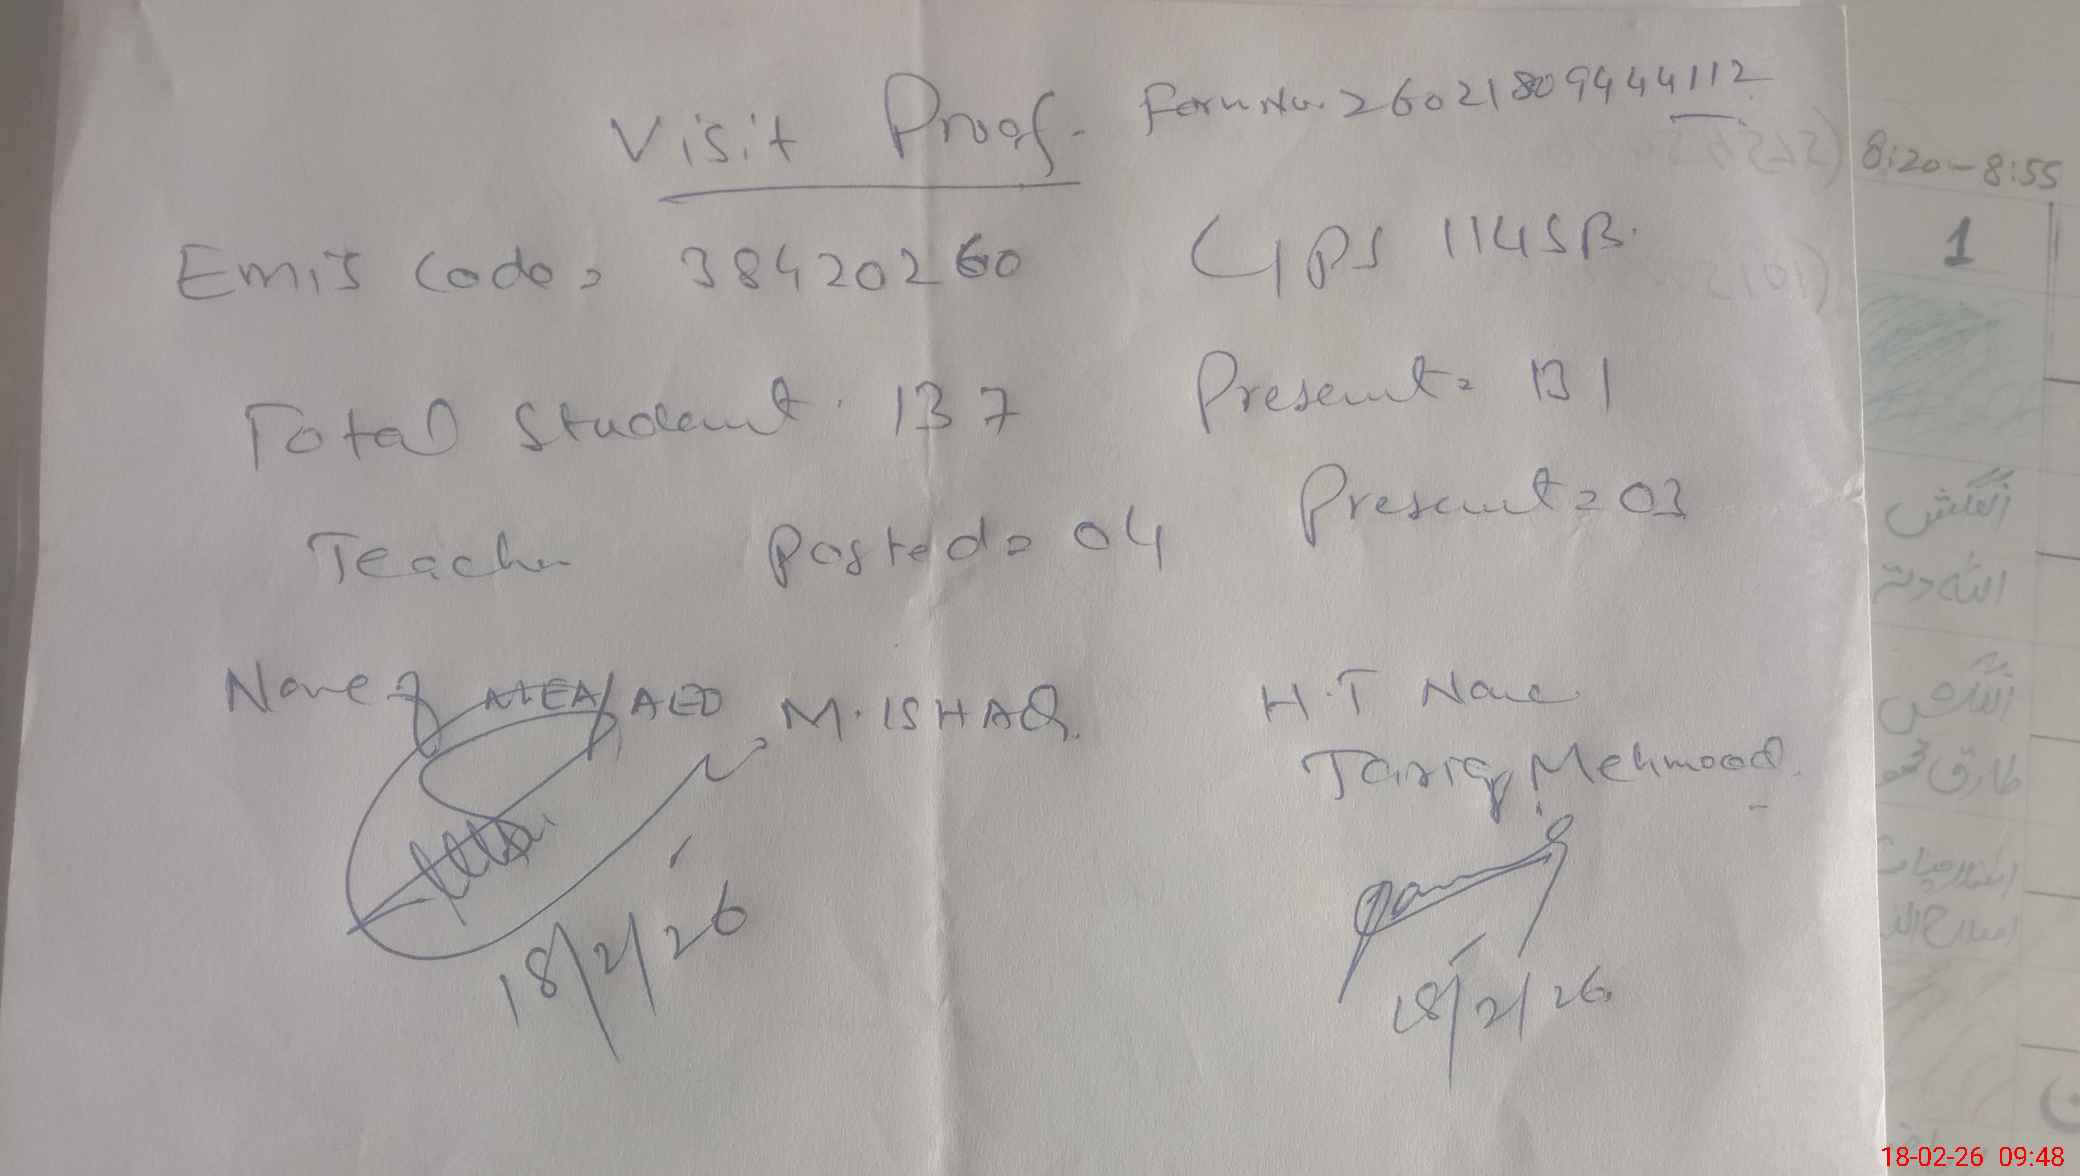 Visit Proof. Form No. 260218094441​12
Emis Code = 38420260 GPS 114SB.
Total Student. 137 Present = 131
Teacher Posted = 04 Present = 03
Name of MEA/AEO M. ISHAQ.
H.T Name
Tariq Mehmood.
18/2/26
18/2/26
8:20-8:55
1
انگلش
اللہ دتہ
انگلش
طارق محمو
18-02-26 09:48